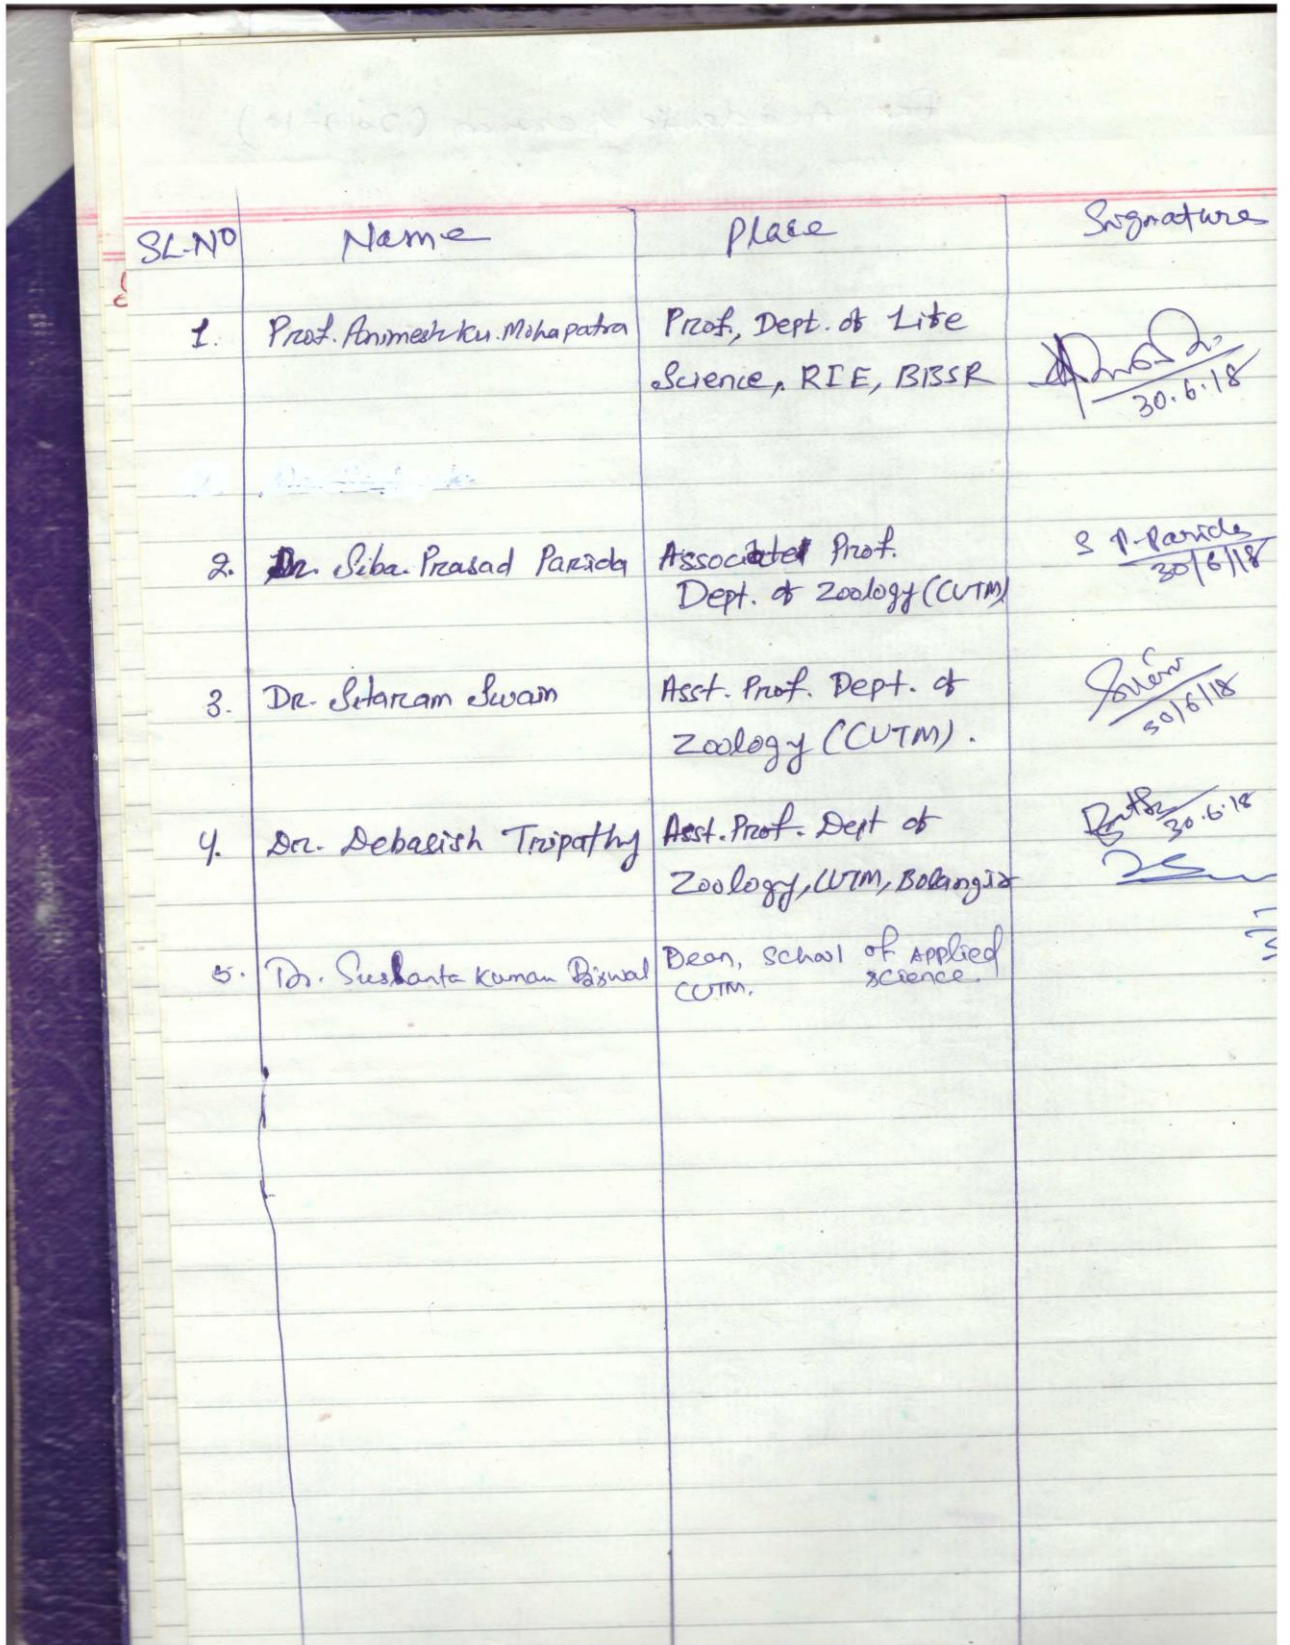 SL-NO Name Place Signature
1. Prof. Animesh ku. Mohapatra Prof., Dept. of Life
Science, RIE, BBSR
30.6.18
2. Dr. Siba Prasad Parida Associate Prof. S P. Parida
Dept. of Zoology (CUTM) 30/6/18
3. Dr. Sitaram Swain Asst. Prof. Dept. of
Zoology (CUTM). 30/6/18
4. Dr. Debasish Tripathy Asst. Prof. Dept of 30.6.18
Zoology, CUTM, Bolangir
5. Dr. Sushanta Kumar Biswal Dean, School of Applied
CUTM. Science.